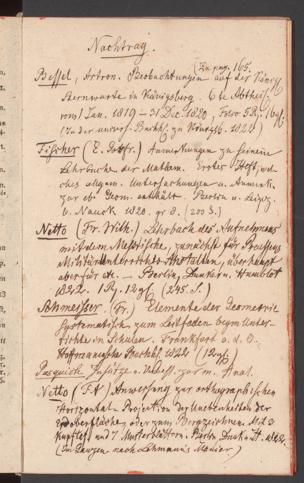 Nachtrag.
(Zu pag. 165.
Bessel, Astron. Beobachtungen auf der Königl.
Sternwarte in Königsberg. 6te Abtheil.
vom 1 Jan. 1819 – 31 Dec. 1820,
in der Univers. Buchh. zu Königsb. 1822)
Fischer (E. Gottfr.) Anmerkungen zu seinem
Lehrbuche der Mathem. Erstes Heft, wel-
ches allgem. Untersuchungen u. Anmerk.
zur eb. Geom. enthält. Berlin u. Leipz.
b. Nauck 1820. gr. 8. (200 S.)
Netto (Fr. Wilh.) Lehrbuch des Aufnehmens
mit dem Messtische, zunächst für Preussens
Militär Unterrichts-Anstalten, überhaupt
aber für etc. — Berlin, Dunker u. Humblot
1822. 1 R. 12 gl. (245 S.)
(Fr.) Elemente der Geometrie
systematisch, zum Leitfaden beym Unter-
richte in Schulen. Frankfurt a. d. O.
Hoffmannische Buchh. 1822 (12 gl)
Pasquich, Zusätze u. z. m. Anal.
Netto (F. W) Anweisung zur orthographischen
Horizontal-Projektion der Unebenheiten der
Erdoberfläche, oder zum Bergzeichnen. Mit 2
Kupftaf. und 7 Musterblättern. Berlin 1822.
(In nach Lehmann's Manier)